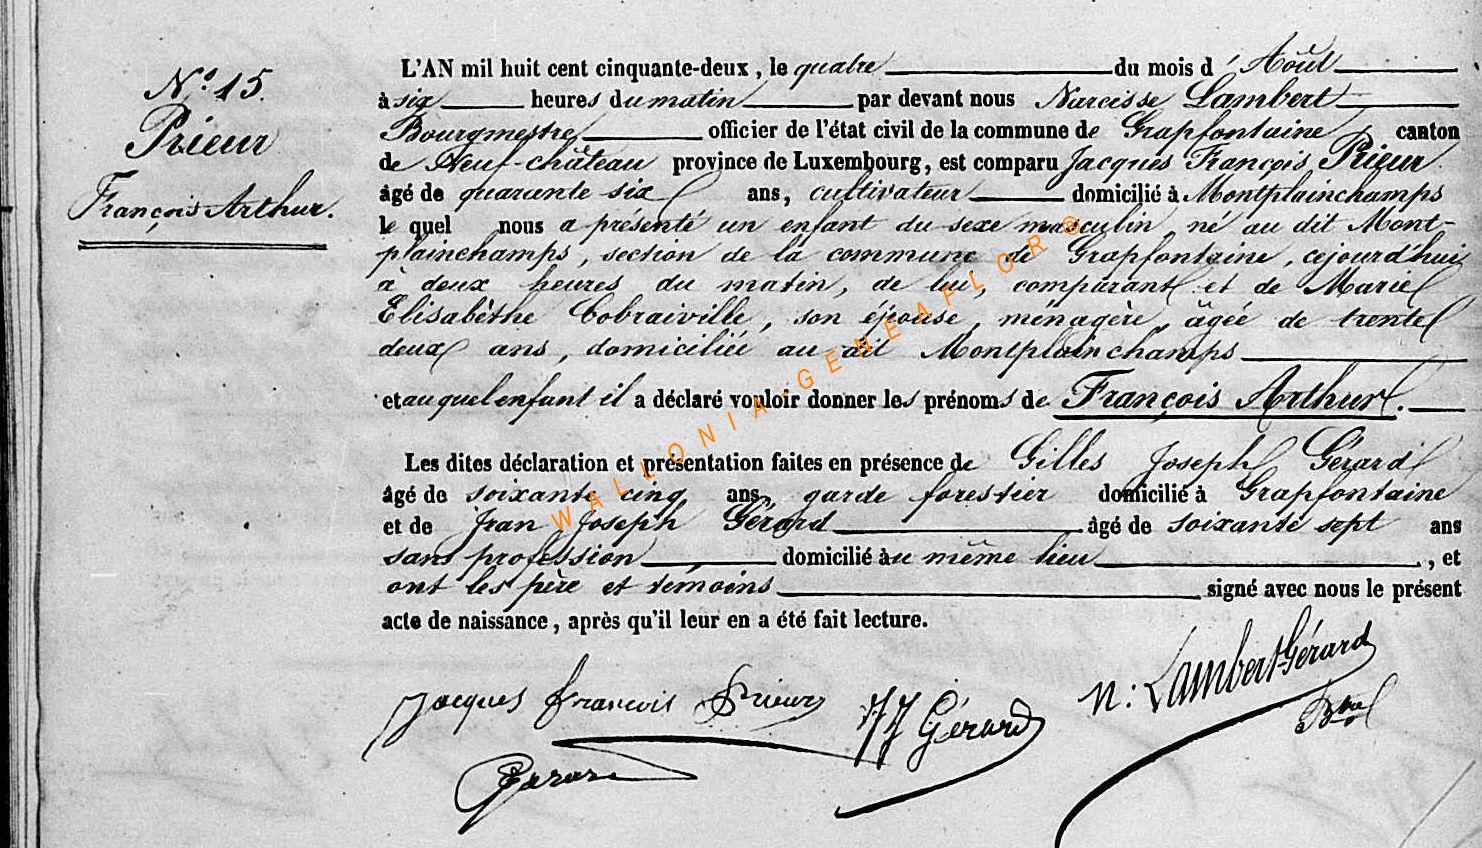 N.° 15.
Prieur
François Arthur.
L'AN mil huit cent cinquante-deux, le quatre du mois d'Août
à six heures du matin par devant nous Narcisse Lambert
Bourgmestre officier de l'état civil de la commune de Grapfontaine canton
de Neuf-château province de Luxembourg, est comparu Jacques François Prieur
âgé de quarante six ans, cultivateur domicilié à Montplainchamps
le quel nous a présenté un enfant du sexe masculin né au dit Mont-
plainchamps, section de la commune de Grapfontaine, cejourd'hui
à deux heures du matin, de lui, comparant et de Marie
Elisabèthe Cobraiville, son épouse, ménagère, âgée de trente
deux ans, domiciliée au dit Montplainchamps
et auquel enfant il a déclaré vouloir donner les prénoms de François Arthur.
Les dites déclaration et présentation faites en présence de Gilles Joseph Gérard
âgé de soixante cinq ans, garde forestier domicilié à Grapfontaine
et de Jean Joseph Gérard âgé de soixante sept ans
sans profession domicilié au même lieu, et
ont les père et témoins signé avec nous le présent
acte de naissance, après qu'il leur en a été fait lecture.
Jacques françois Prieur JJ Gérard n: Lambert-Gérard
Gerard
WALLONIA-GENEAFLOR®